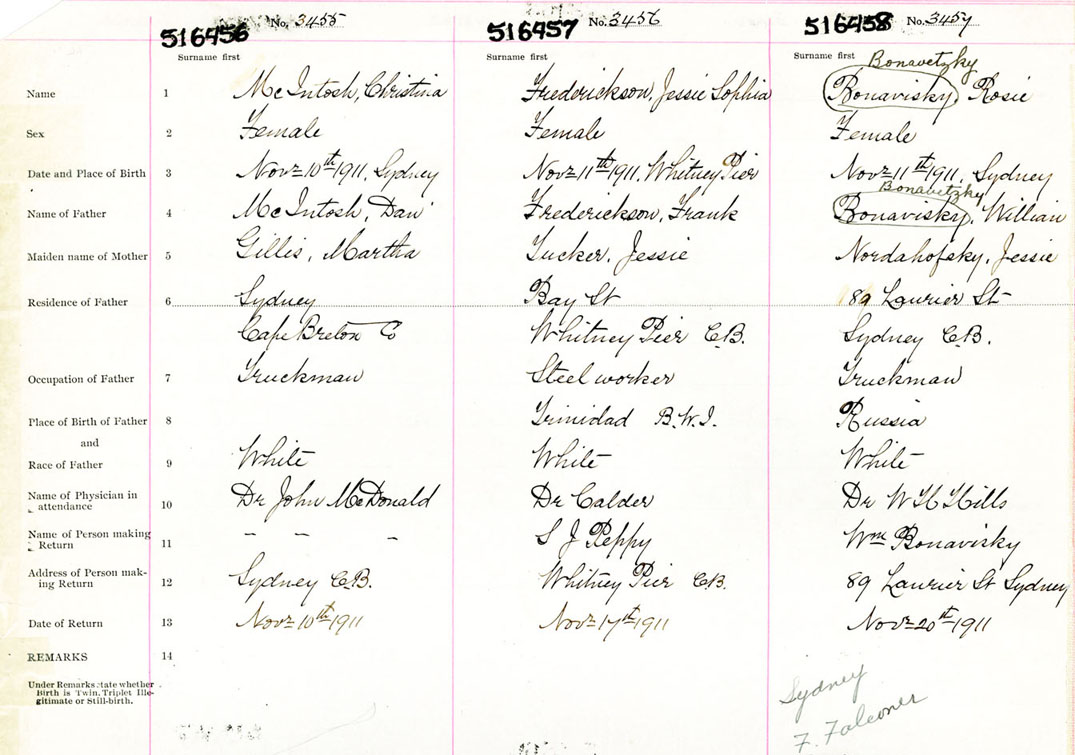 516456 No. 3455 516457 No. 3456 516458 No. 3457
Surname first Surname first Surname first Bonavetzky
Name 1 McIntosh, Christina Frederickson, Jessie Sophia Bonavisky, Rosie
Sex 2 Female Female Female
Date and Place of Birth 3 Novr 10th 1911, Sydney Novr 11th 1911, Whitney Pier Novr 11th 1911, Sydney
Bonavetzky
Name of Father 4 McIntosh, Dan Frederickson, Frank Bonavisky, William
Maiden name of Mother 5 Gillis, Martha Tucker, Jessie Nordahofsky, Jessie
Residence of Father 6 Sydney Bay St 89 Laurier St
Cape Breton Co Whitney Pier C.B. Sydney C.B.
Occupation of Father 7 Truckman Steel worker Truckman
Place of Birth of Father 8 Trinidad B.W.I. Russia
and
Race of Father 9 White White White
Name of Physician in
attendance 10 Dr John McDonald Dr Calder Dr W H Hills
Name of Person making
Return 11 – – – S J Peppy Wm Bonavisky
Address of Person mak-
ing Return 12 Sydney C.B. Whitney Pier C.B. 89 Laurier St Sydney
Date of Return 13 Novr 10th 1911 Novr 17th 1911 Novr 20th 1911
REMARKS 14
Under Remarks state whether
Birth is Twin, Triplet Ille-
gitimate or Still-birth.
Sydney
F. Falconer